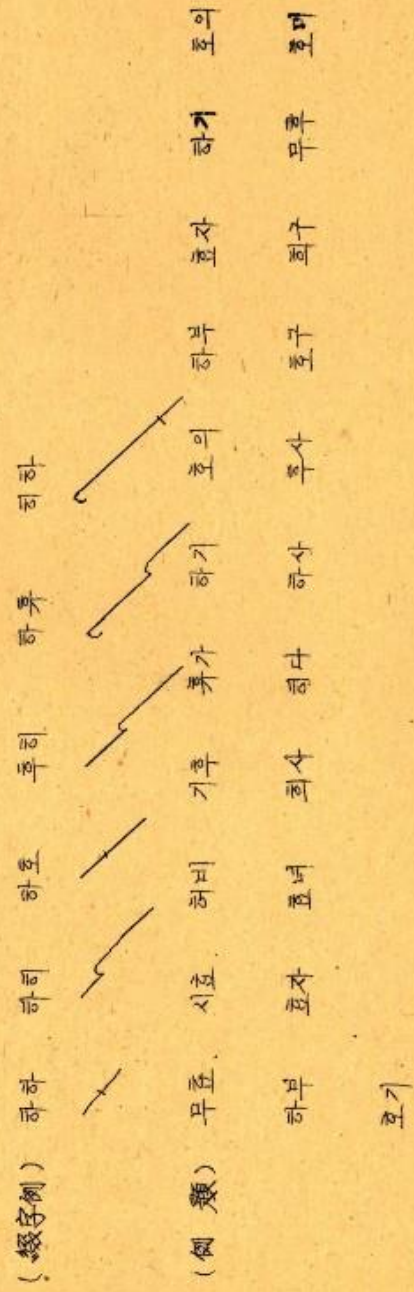 (綴字例) 하하 하히 하호 후히 하휴 히하
(例題) 무효 시효 허비 기후 휴가 하기 호의 하부 효자 하기 호의
하부 효자 효녀 회사 하사 후사 호구 희구 무후
호기